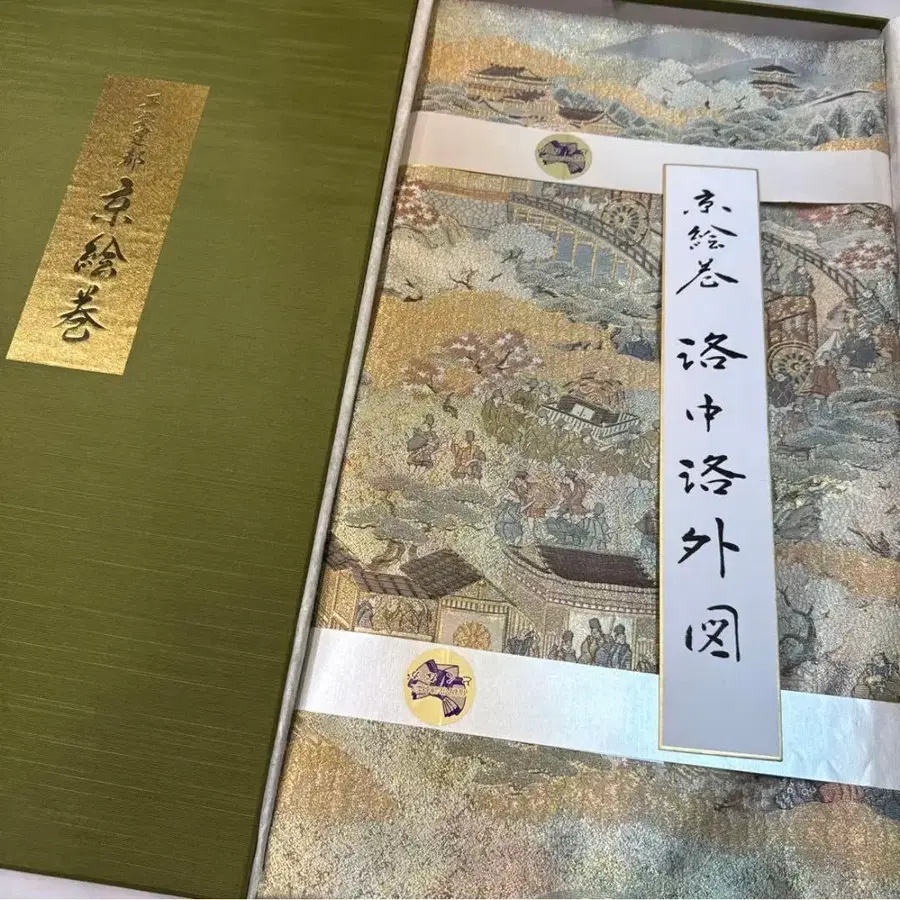 京絵巻
京絵巻 洛中洛外図